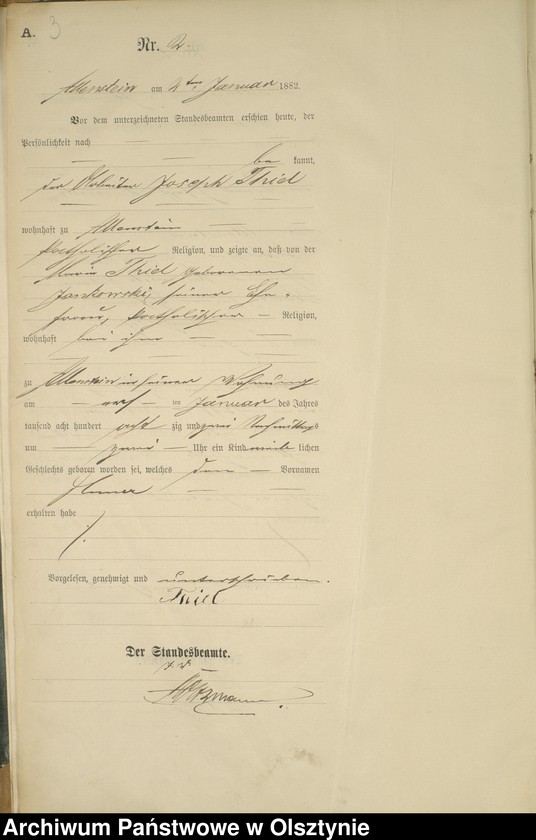 A. 3
Nr. 2.
Allenstein am 2ten Januar 1882.
Vor dem unterzeichneten Standesbeamten erschien heute, der
Persönlichkeit nach
be kannt,
der Arbeiter Joseph Thiel
wohnhaft zu Allenstein
katholischer Religion, und zeigte an, daß von der
Maria Thiel geborenen
Jankowski, seiner Ehe-
frau, katholischer Religion,
wohnhaft bei ihm
zu Allenstein in seiner Wohnung
am ten Januar des Jahres
tausend acht hundert acht zig und zwei Nachmittags
um zwei Uhr ein Kind weib lichen
Geschlechts geboren worden sei, welches den Vornamen
erhalten habe
Vorgelesen, genehmigt und unterschrieben.
Thiel
Der Standesbeamte.
Archiwum Państwowe w Olsztynie